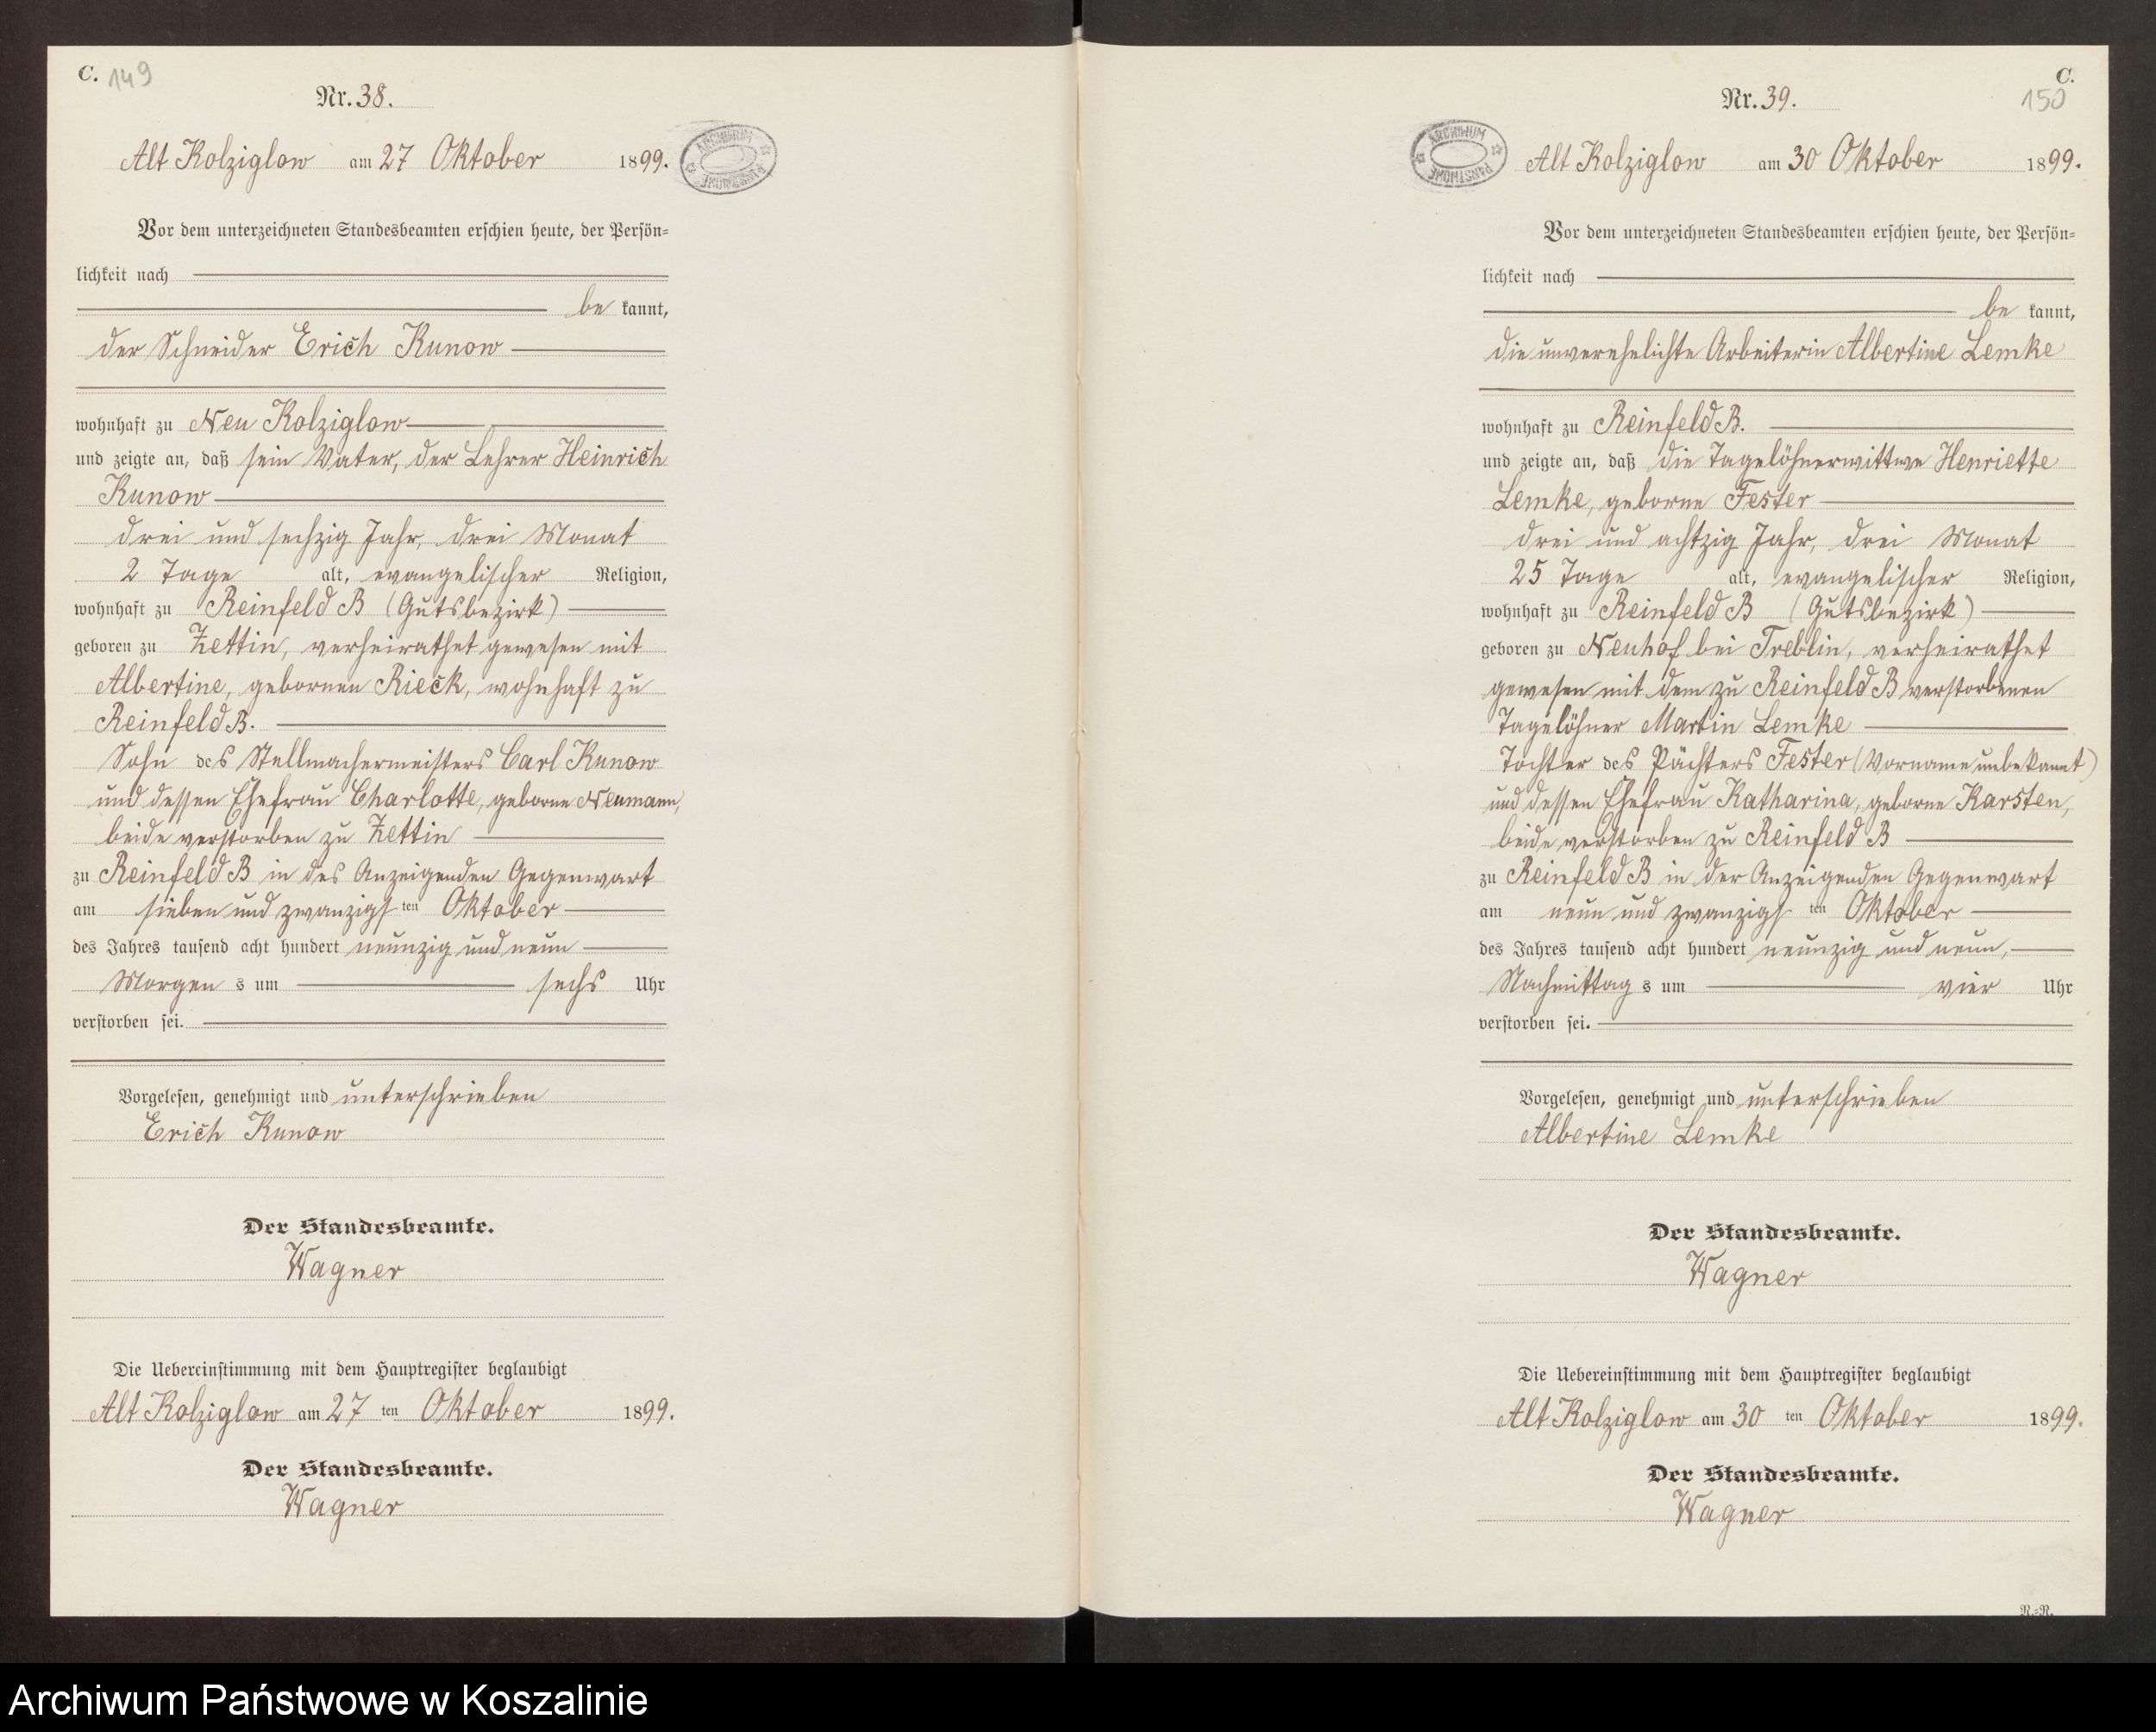 C. 149
Nr. 38.
Alt Kolziglow am 27 Oktober 1899.
ARCHIWUM PAŃSTWOWE
Vor dem unterzeichneten Standesbeamten erschien heute, der Persön-
lichkeit nach
be kannt,
der Schneider Erich Kunow
wohnhaft zu Neu Kolziglow
und zeigte an, daß sein Vater, der Lehrer Heinrich
Kunow
drei und sechzig Jahr, drei Monat
2 Tage alt, evangelischer Religion,
wohnhaft zu Reinfeld B (Gutsbezirk)
geboren zu Zettin, verheirathet gewesen mit
Albertine, gebornen Rieck, wohnhaft zu
Reinfeld B.
Sohn des Stellmachermeisters Carl Kunow
und dessen Ehefrau Charlotte, geborne Neumann,
beide verstorben zu Zettin
zu Reinfeld B in des Anzeigenden Gegenwart
am sieben und zwanzigsten Oktober
des Jahres tausend acht hundert neunzig und neun
Morgens um sechs Uhr
verstorben sei.
Vorgelesen, genehmigt und unterschrieben
Erich Kunow
Der Standesbeamte.
Wagner
Die Uebereinstimmung mit dem Hauptregister beglaubigt
Alt Kolziglow am 27 ten Oktober 1899.
Der Standesbeamte.
Wagner
C.
150
Nr. 39.
ARCHIWUM PAŃSTWOWE
Alt Kolziglow am 30 Oktober 1899.
Vor dem unterzeichneten Standesbeamten erschien heute, der Persön-
lichkeit nach
be kannt,
die unverehelichte Arbeiterin Albertine Lemke
wohnhaft zu Reinfeld B.
und zeigte an, daß die Tagelöhnerwittwe Henriette
Lemke, geborne Fester
drei und achtzig Jahr, drei Monat
25 Tage alt, evangelischer Religion,
wohnhaft zu Reinfeld B (Gutsbezirk)
geboren zu Neuhof bei Treblin, verheirathet
gewesen mit dem zu Reinfeld B verstorbenen
Tagelöhner Martin Lemke
Tochter des Pächters Fester (Vorname unbekannt)
und dessen Ehefrau Katharina, geborne Karsten,
beide verstorben zu Reinfeld B
zu Reinfeld B in der Anzeigenden Gegenwart
am neun und zwanzigsten Oktober
des Jahres tausend acht hundert neunzig und neun,
Nachmittags um vier Uhr
verstorben sei.
Vorgelesen, genehmigt und unterschrieben
Albertine Lemke
Der Standesbeamte.
Wagner
Die Uebereinstimmung mit dem Hauptregister beglaubigt
Alt Kolziglow am 30 ten Oktober 1899.
Der Standesbeamte.
Wagner
N.-N.
Archiwum Państwowe w Koszalinie